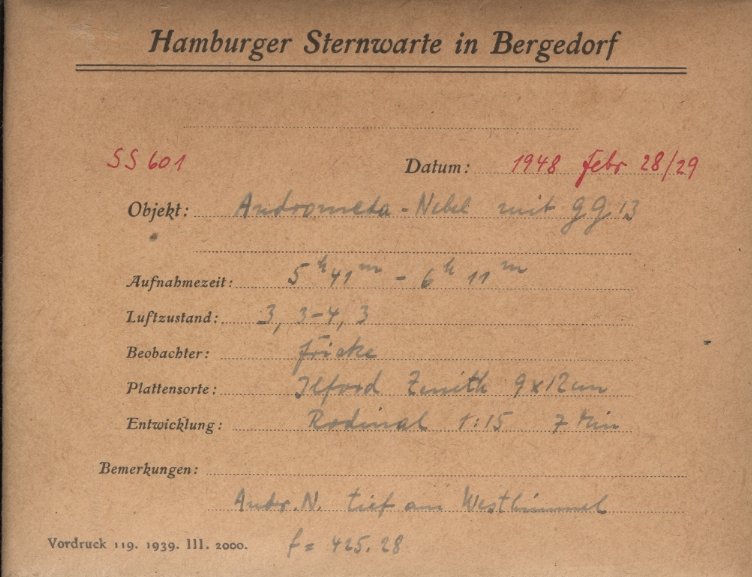 Hamburger Sternwarte in Bergedorf
SS 601 Datum: 1948 Febr 28/29
Objekt: Andromeda-Nebel mit GG 13
Aufnahmezeit: 5h 41m - 6h 11m
Luftzustand: 3, 3-4, 3
Beobachter: Fricke
Plattensorte: Ilford Zenith 9x12cm
Entwicklung: Rodinal 1:15 7 Min
Bemerkungen:
Andr. N. tief am Westhimmel
Vordruck 119. 1939. III. 2000. f = 425.28